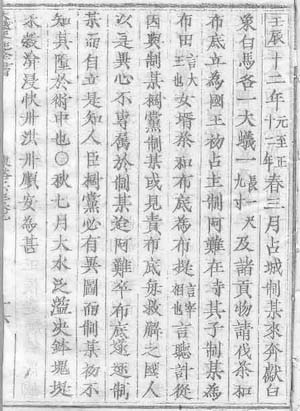 壬辰十二年元至正十二年春三月占城制某來奔獻白
象白馬各一大蟻一長一尺九寸及諸貢物請伐茶和
布底立為國王初占主制阿難在寺其子制某為
布田言大王也女壻茶和布底為布提言宰相也言聽計從
因與制某搆黨制某或見責布底每救解之國人
以是異心不專属於制某迨阿難卒布底遂逐制
某而自立是知人臣搆黨必有異圖而制某初不
知其陷於術中也○秋七月大水泛溢決鉢塊堤
禾穀渰浸快州洪州順安為甚